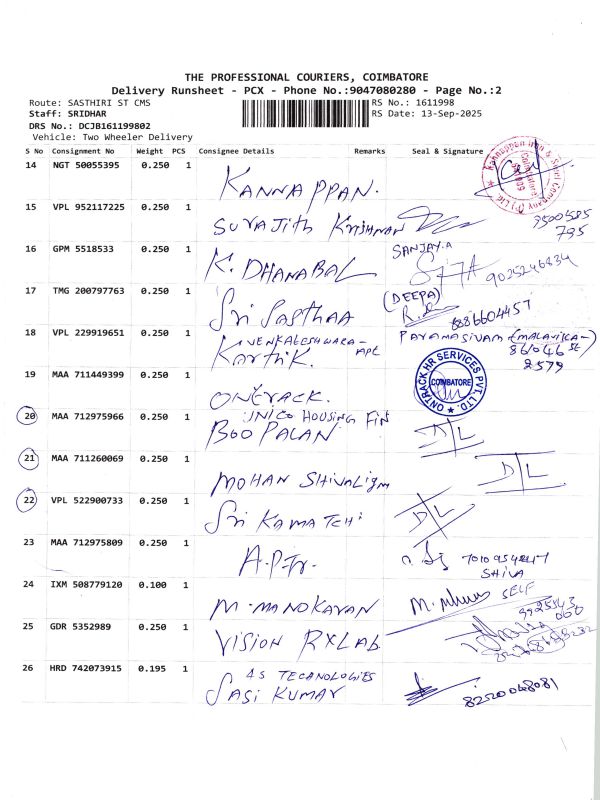 THE PROFESSIONAL COURIERS, COIMBATORE
Delivery Runsheet - PCX - Phone No.:9047080280 - Page No.:2
Route: SASTHIRI ST CMS RS No.: 1611998
Staff: SRIDHAR RS Date: 13-Sep-2025
DRS No.: DCJB161199802
Vehicle: Two Wheeler Delivery
S No Consignment No Weight PCS Consignee Details Remarks Seal & Signature
14 NGT 50055395 0.250 1 KANNAPPAN.
15 VPL 952117225 0.250 1 SURAJITH KRISHNAN 9500585
795
16 GPM 5518533 0.250 1 K. DHANABAL SANJAY.A 9025246834
17 TMG 200797763 0.250 1 Sri Sasthaa (DEEPA) 8886604457
18 VPL 229919651 1 0.250 VENKALESHWARA-APL
Karthik. PARAMASIVAM (MALAVIKA-)
861046
2579
19 MAA 711449399 0.250 1 ONTRACK. ONTRACK HR SERVICES PVT. LTD. COIMBATORE
20 MAA 712975966 0.250 1 UNICO HOUSING FIN
BOOPALAN D/L
21 MAA 711260069 0.250 1 MOHAN SHIVALIGM D/L
22 VPL 522900733 0.250 1 Sri KAMATCHi D/L
23 MAA 712975809 0.250 1 A.P.Tr. SHIVA
24 IXM 508779120 0.100 1 M. MANOKARAN SELF
25 GDR 5352989 0.250 1 VISION RXLAB
26 HRD 742073915 0.195 1 4S TECANOLOGIES
SASI KUMAR 8220048081